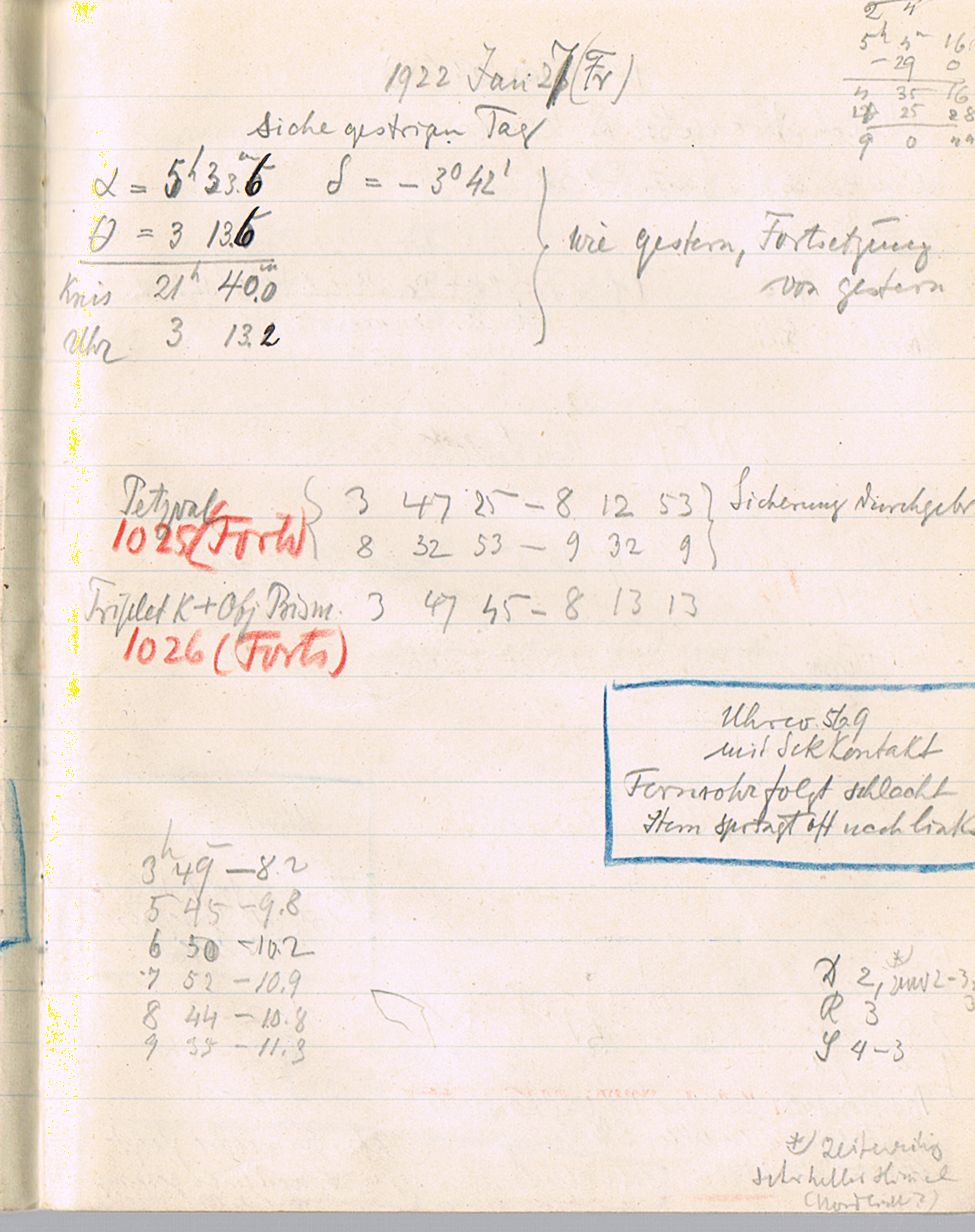 2 4
5h 4m 16
- 29 0
4 35 16
25 28
9 0 44
1922 Jan 27 (Fr)
Siehe gestrigen Tag
α = 5h 33.m6 δ = - 3° 42'
θ = 3 13.6
Kreis 21h 40.m0
Uhr 3 13.2
wie gestern, Fortsetzung
von gestern
Petzval 3 47 25 - 8 12 53 Sicherung durchgebr
1025 (Forts) 8 32 53 - 9 32 9
Triplet K + Obj Prism. 3 47 45 - 8 13 13
1026 (Forts)
Uhrco. 569
mit Sek Kontakt
Fernrohr folgt schlecht
Stern springt oft nach links
3h 49 - 8.2
5 45 - 9.8
6 50 - 10.2
7 52 - 10.9
8 44 - 10.8
9 35 - 11.3
D 2, *) 2-3
R 3
S 4-3
*) zeitweilig
sehr heller Himmel
(Nordlicht?)